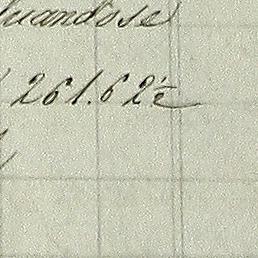 quandose
261.62½